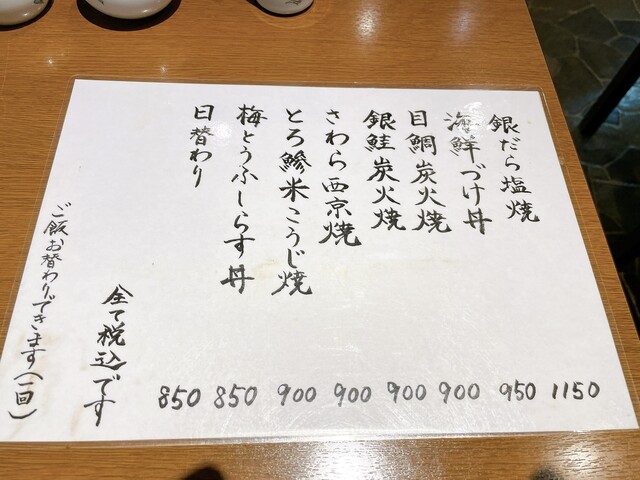 銀だら塩焼 1150
海鮮づけ丼 950
目鯛炭火焼 900
銀鮭炭火焼 900
さわら西京焼 900
とろ鯵米こうじ焼 900
梅とうふしらす丼 850
日替わり 850
全て税込です
ご飯お替わりできます(一回)